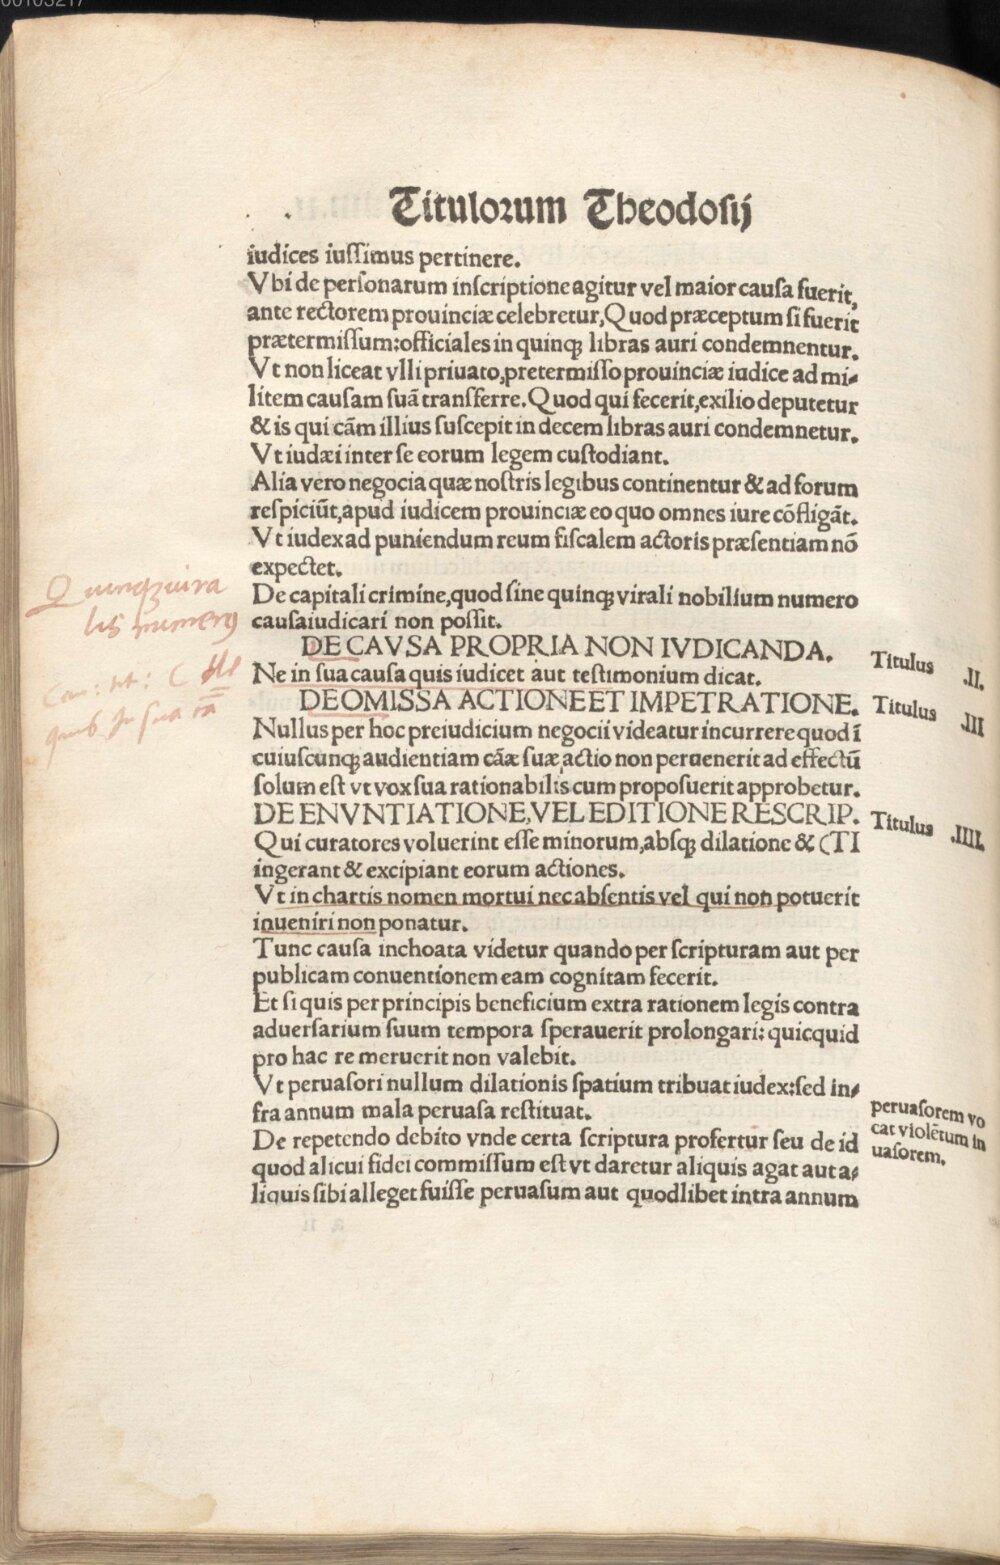 00103217
Titulorum Theodosij
iudices iussimus pertinere.
Vbi de personarum inscriptione agitur vel maior causa fuerit,
ante rectorem prouinciæ celebretur, Quod præceptum si fuerit
prætermissum: officiales in quinqꝫ libras auri condemnentur.
Vt non liceat vlli priuato, pretermisso prouinciæ iudice ad mi-
litem causam suā transferre. Quod qui fecerit, exilio deputetur
& is qui cām illius suscepit in decem libras auri condemnetur.
Vt iudæi inter se eorum legem custodiant.
Alia vero negocia quæ nostris legibus continentur & ad forum
respiciūt, apud iudicem prouinciæ eo quo omnes iure cōfligāt.
Vt iudex ad puniendum reum fiscalem actoris præsentiam nō
expectet.
De capitali crimine, quod sine quinqꝫ virali nobilium numero
causa iudicari non possit.
Quinqꝫuira
lis numerꝰ
DE CAVSA PROPRIA NON IVDICANDA.
Titulus .II.
Ne in sua causa quis iudicet aut testimonium dicat.
quis in sua cā
DE OMISSA ACTIONE ET IMPETRATIONE.
Titulus .III
Nullus per hoc preiudicium negocii videatur incurrere quod ī
cuiuscunqꝫ audientiam cāæ suæ actio non peruenerit ad effectū
solum est vt vox sua rationabilis cum proposuerit approbetur.
DE ENVNTIATIONE, VEL EDITIONE RESCRIP.
Titulus .IIII.
Qui curatores voluerint esse minorum, absqꝫ dilatione & (TI
ingerant & excipiant eorum actiones.
Vt in chartis nomen mortui nec absentis vel qui non potuerit
inueniri non ponatur.
Tunc causa inchoata videtur quando per scripturam aut per
publicam conuentionem eam cognitam fecerit.
Et si quis per principis beneficium extra rationem legis contra
aduersarium suum tempora sperauerit prolongari: quicquid
pro hac re meruerit non valebit.
Vt peruasori nullum dilationis spatium tribuat iudex: sed in-
fra annum mala peruasa restituat.
peruasorem vo
cat violētum in
uasorem.
De repetendo debito vnde certa scriptura profertur seu de id
quod alicui fidei commissum est vt daretur aliquis agat aut a-
liquis sibi alleget fuisse peruasum aut quodlibet intra annum